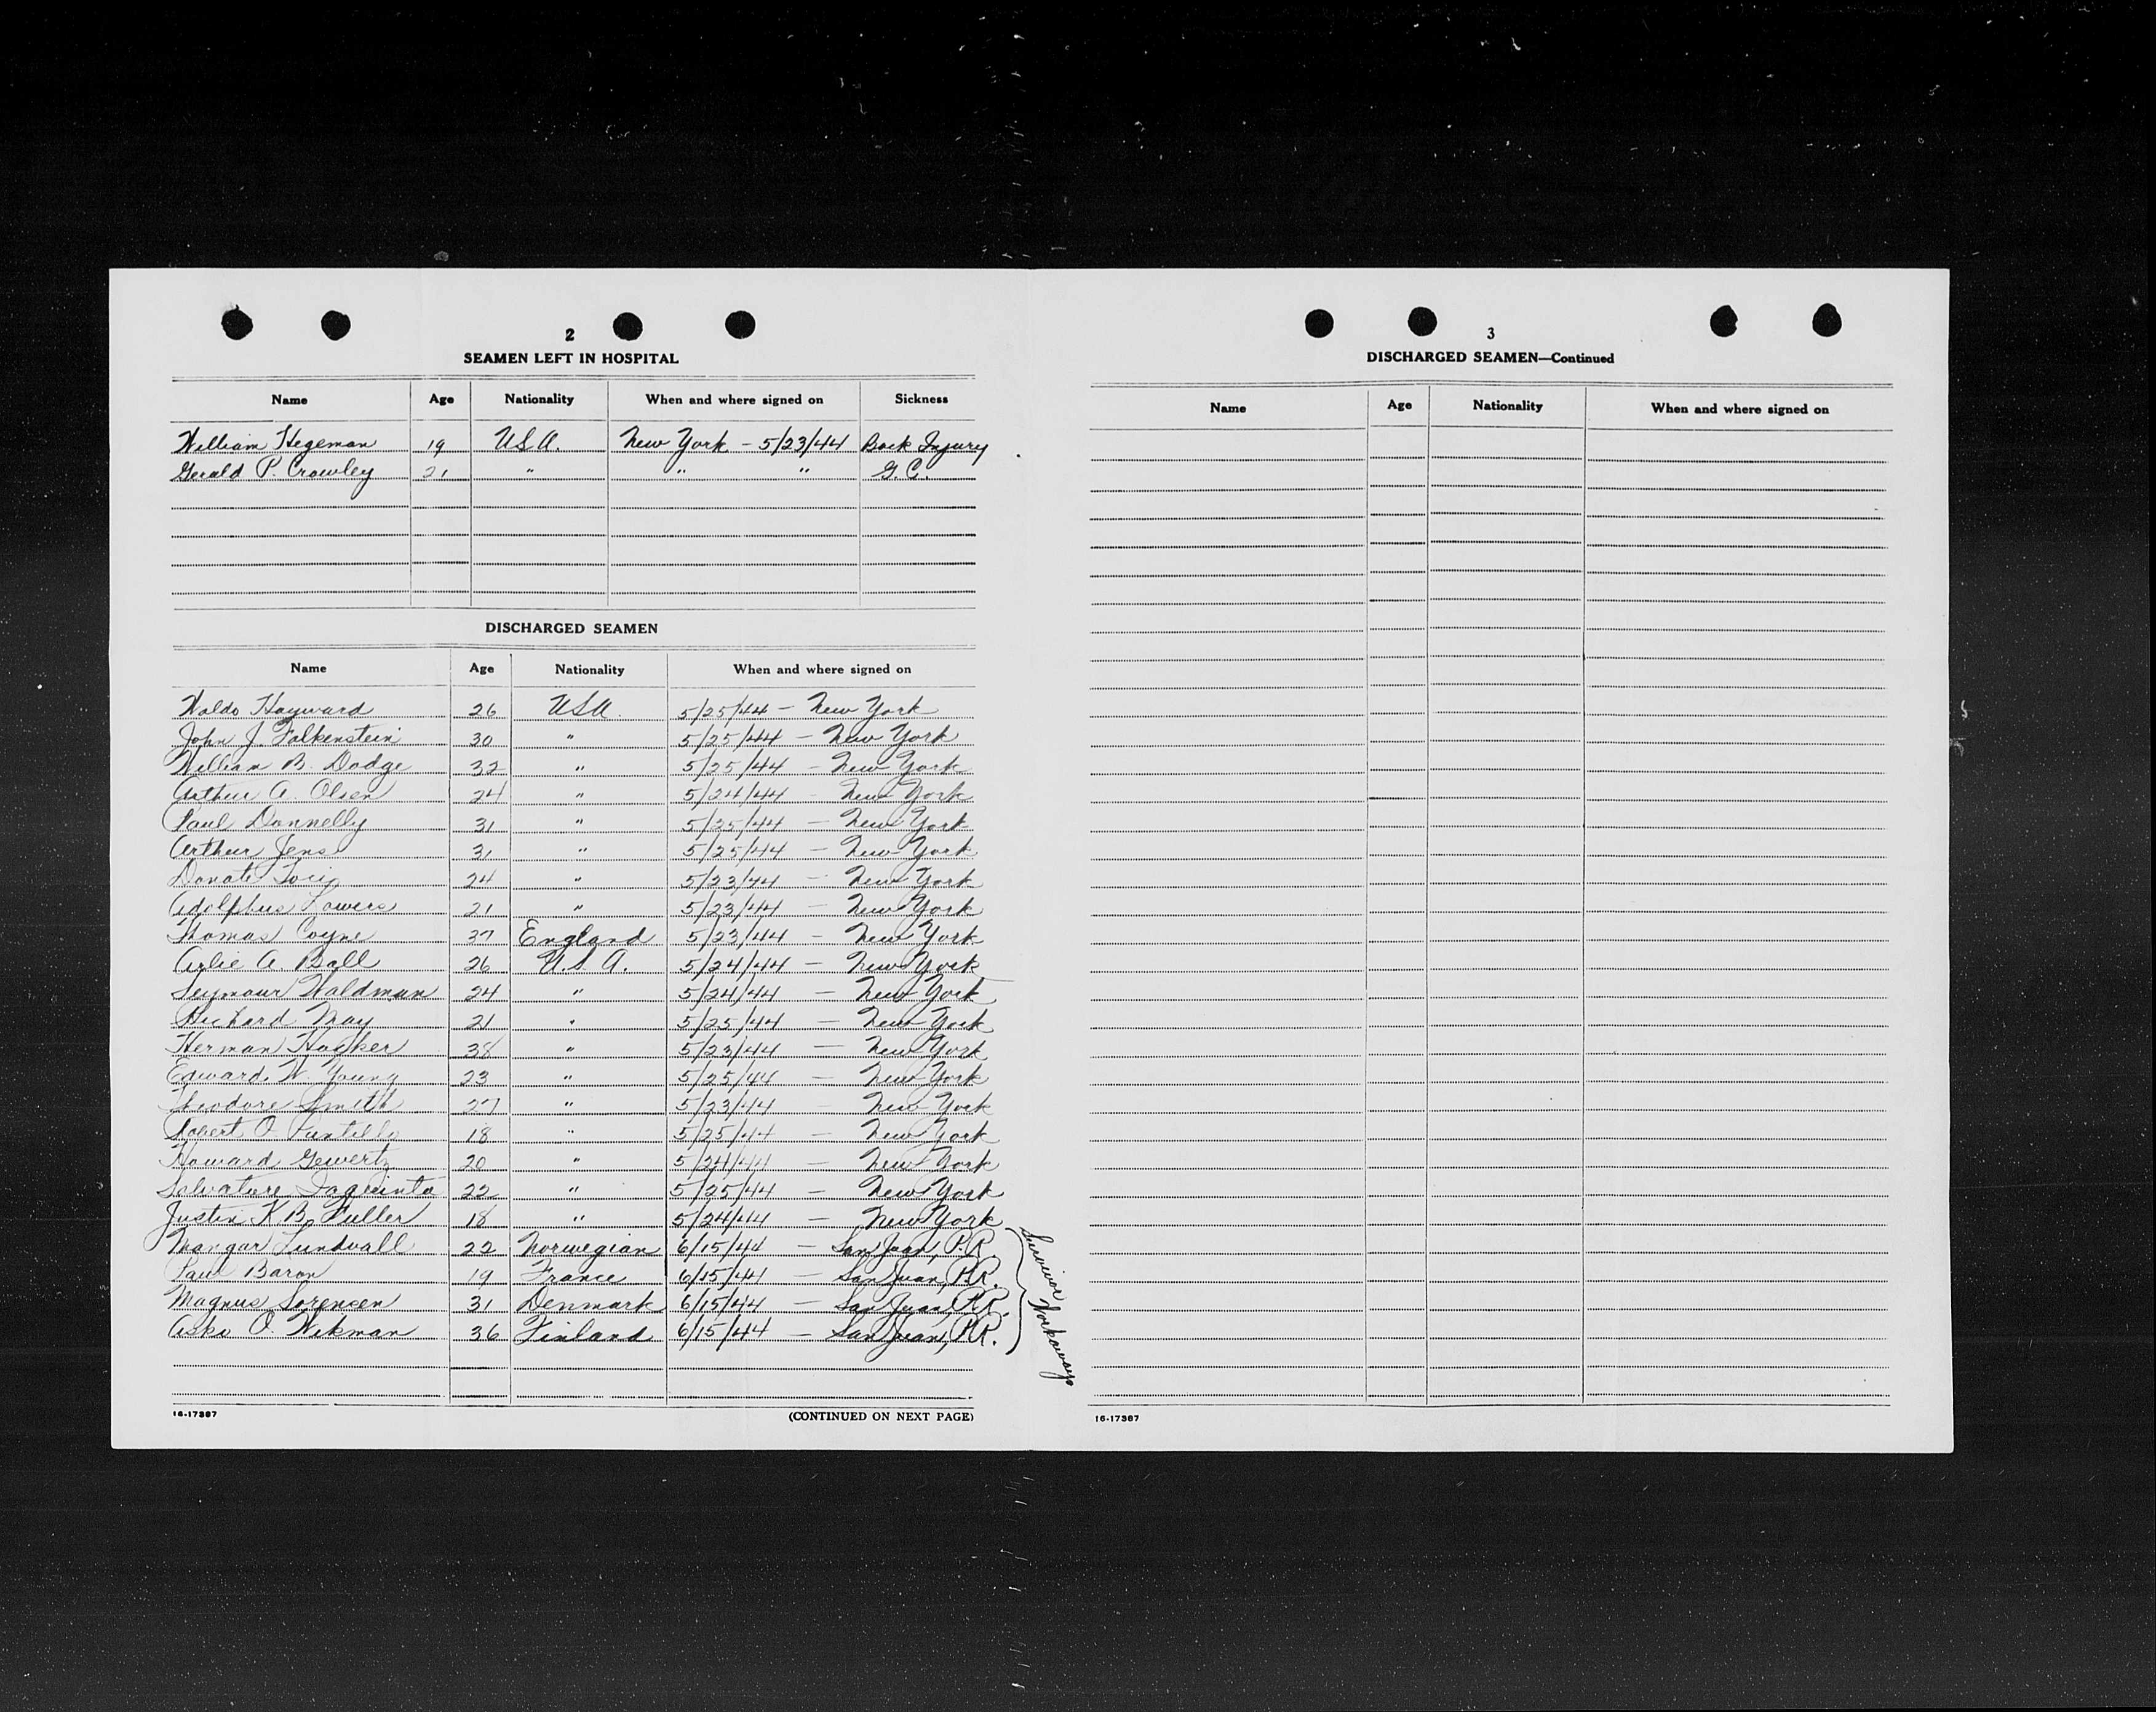 2
SEAMEN LEFT IN HOSPITAL
Name Age Nationality When and where signed on Sickness
William Hegeman 19 U.S.A. New York - 5/23/44 Back Injury
Gerald P. Crowley 21 " " " G.C.
DISCHARGED SEAMEN
Name Age Nationality When and where signed on
Waldo Hayward 26 USA 5/25/44 - New York
John J. Falkenstein 30 " 5/25/44 - New York
William B. Dodge 32 " 5/25/44 - New York
Arthur A. Olsen 24 " 5/24/44 New York
Paul Donnelly 31 " 5/25/44 - New York
Arthur Jens 31 " 5/25/44 - New York
Donato 24 " 5/23/44 - New York
Adolphus 21 " 5/23/44 - New York
Thomas Coyne 37 England 5/23/44 - New York
Arlie A. Ball 26 U.S.A. 5/24/44 - New York
Seymour Waldman 24 " 5/24/44 - New York
Richard May 21 " 5/25/44 - New York
Herman 38 " 5/23/44 - New York
Edward W. Young 23 " 5/25/44 - New York
Theodore Smith 27 " 5/23/44 - New York
Robert O. 18 " 5/25/44 - New York
Howard Gewertz 20 " 5/24/44 - New York
Salvatore Iaquinto 22 " 5/25/44 - New York
Justin K B Fuller 18 " 5/24/44 - New York
Lundvall 22 Norwegian 6/15/44 - San Juan, P.R.
Paul Baron 19 France 6/15/44 - San Juan, P.R.
Magnus Sorensen 31 Denmark 6/15/44 - San Juan, P.R.
Asko O. Wikman 36 Finland 6/15/44 - San Juan, P.R.
Survivor Workaways
16-17387
(CONTINUED ON NEXT PAGE)
3
DISCHARGED SEAMEN—Continued
Name Age Nationality When and where signed on
16-17387